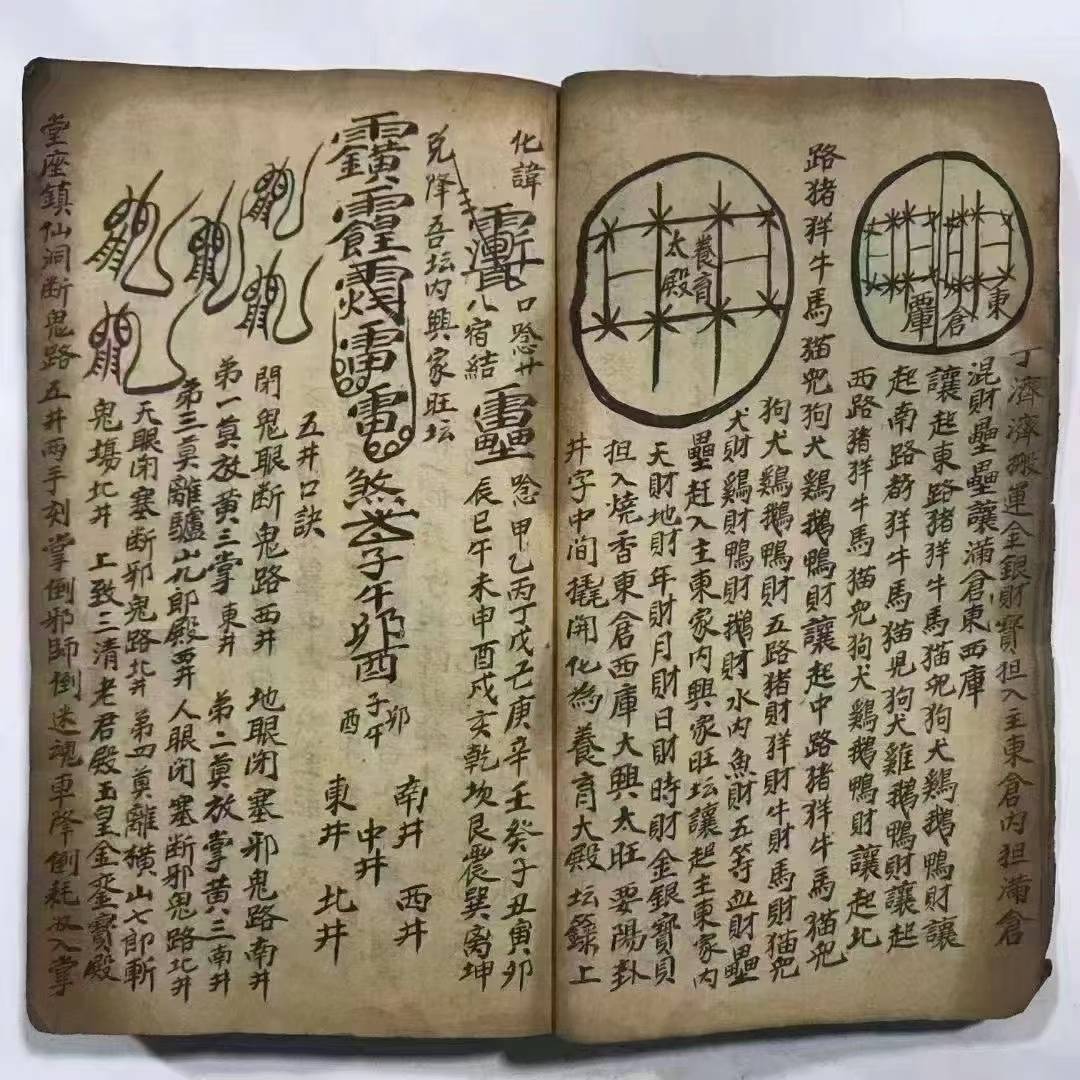 丁濟濟搬運金銀財寳担入主東倉内担滿倉
混財壘壘讓滿倉東西庫
讓起東路猪羊牛馬猫児狗犬鷄鹅鴨財讓
起南路猪羊牛馬猫児狗犬雞鹅鴨財讓起
西路猪羊牛馬猫児狗犬鷄鹅鴨財讓起北
路猪羊牛馬猫児狗犬鷄鹅鴨財讓起中路猪羊牛馬猫児
狗犬鷄鹅鴨財五路猪財羊財牛財馬財猫児
犬財鷄財鴨財鹅財水内魚財五等血財壘
壘赶入主東家内興家旺坛讓起主東家内
天財地財年財月財日財時財金銀寳貝
担入燒香東倉西庫大興太旺要陽卦
井字中间撬開化為養育大殿坛籙上
東倉
西庫
養育
太殿
化諱
口唸井
唸甲乙丙丁戊己庚辛壬癸子丑寅卯
八宿結
辰巳午未申酉戌亥乾坎艮震巽离坤
兑降吾坛内興家旺坛
南井
西井
中井
東井
北井
煞
子午卯酉
子午
卯
酉
五井口訣
閉鬼眼断鬼路西井
地眼闭塞邪鬼路南井
弟一奠放黄三掌
東井
弟二奠放掌黄三南井
弟三奠離驢山九郎殿西井
人眼闭塞断邪鬼路北井
天眼闭塞断邪鬼路北井
弟四奠離横山七郎斬
鬼塲北井
上致三清老君殿玉皇金銮寳殿
堂座鎮仙洞断鬼路五井两手刻掌倒邪師倒迷魂車降倒耗入掌